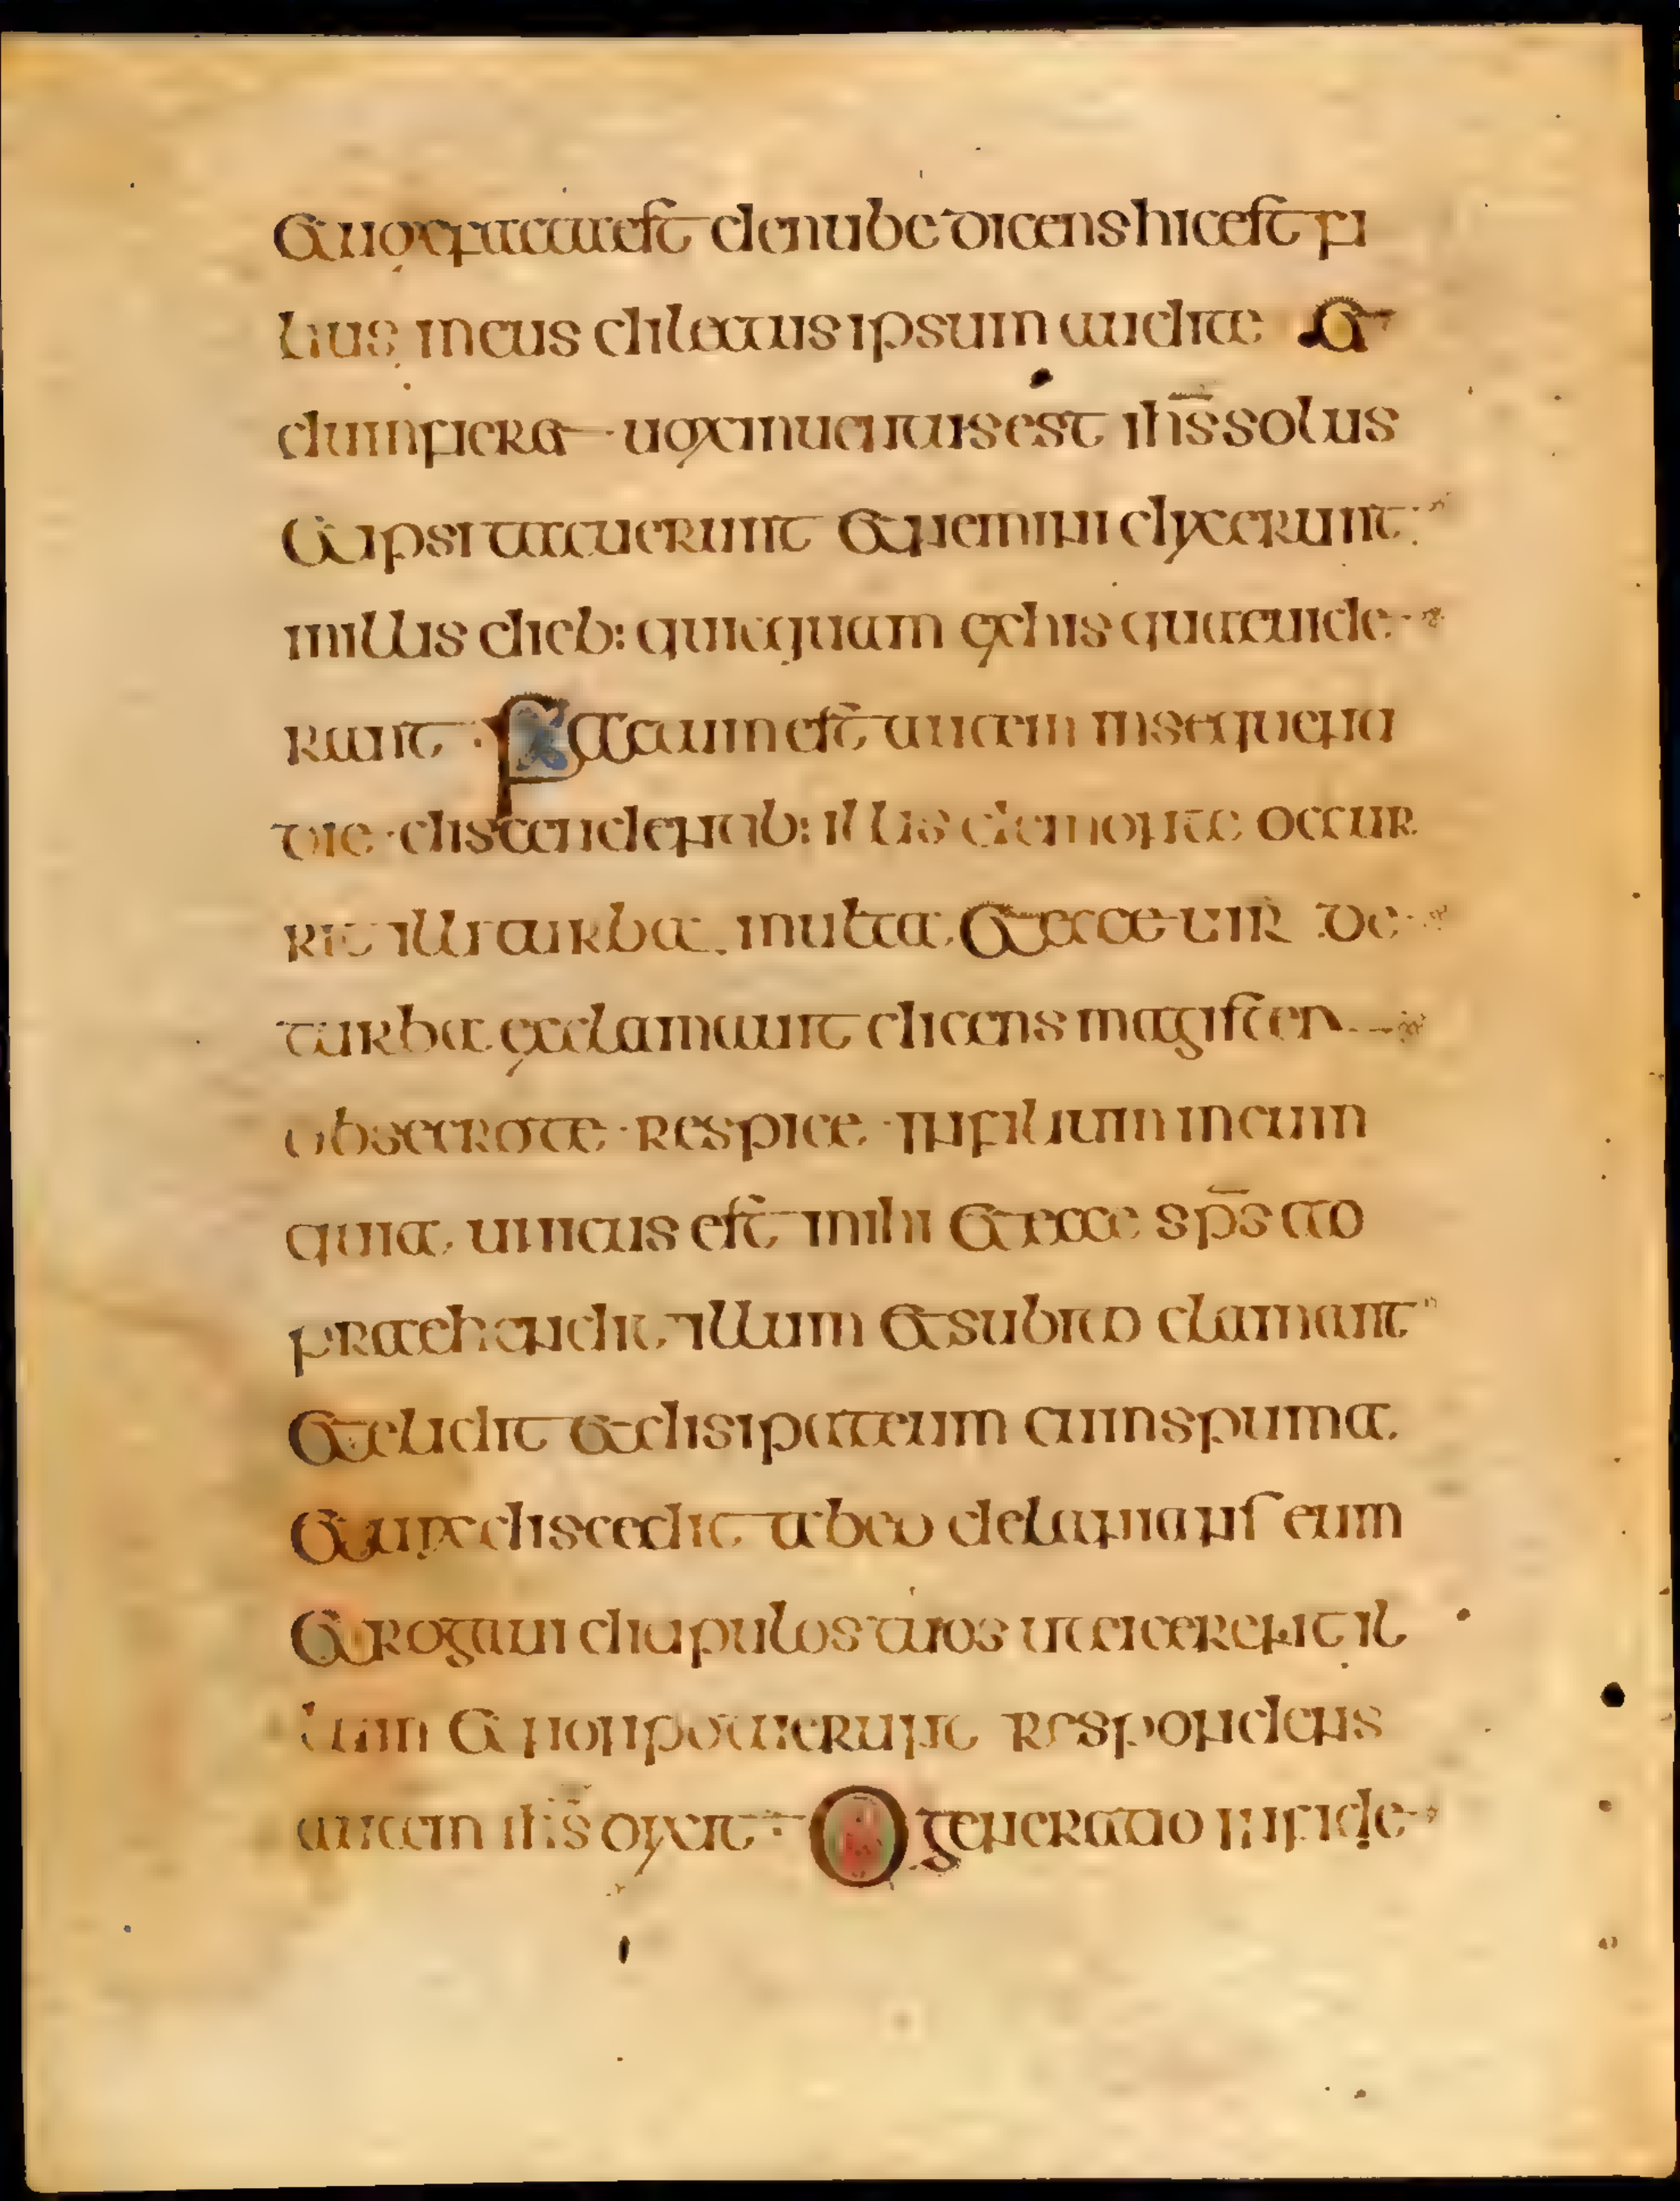 Et uox facta est de nube dicens hic est fi
lius meus dilectus ipsum audite Et
dum fieret uox inuentus est ihs solus
Et ipsi tacuerunt et nemini dyxerunt
in illis dieb: quicquam ex his quae uide
runt Factum est autem in sequenti
die discendentib: illis de monte occur
rit illi turba multa et ecce uir de
turba exclamauit dicens magister
obsecro te respice in filium meum
quia unicus est mihi et ecce sps ad
praehendit illum et subito clamant
Et elidit et disipat eum cum spuma
Et uix discedit ab eo delanians eum
Et rogaui discipulos tuos ut eicerent il
lum et non potuerunt respondens
autem ihs dyxit O generatio infide